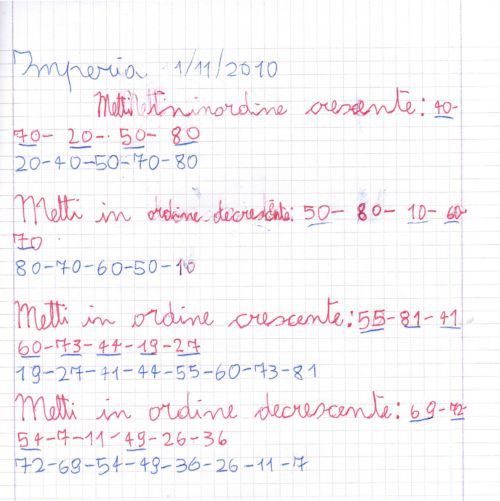 Imperia 1/11/2010
Metti in ordine crescente: 40-
70- 20- 50- 80
20-40-50-70-80
Metti in ordine decrescente: 50- 80- 10- 60-
70
80-70-60-50-10
Metti in ordine crescente: 55-81-41
60-73-44-19-27
19-27-41-44-55-60-73-81
Metti in ordine decrescente: 69-72-
54-7-11-49-26-36
72-69-54-49-36-26-11-7